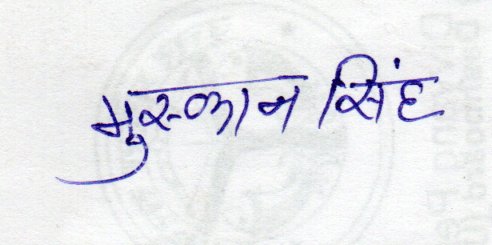 मुस्कान सिंह